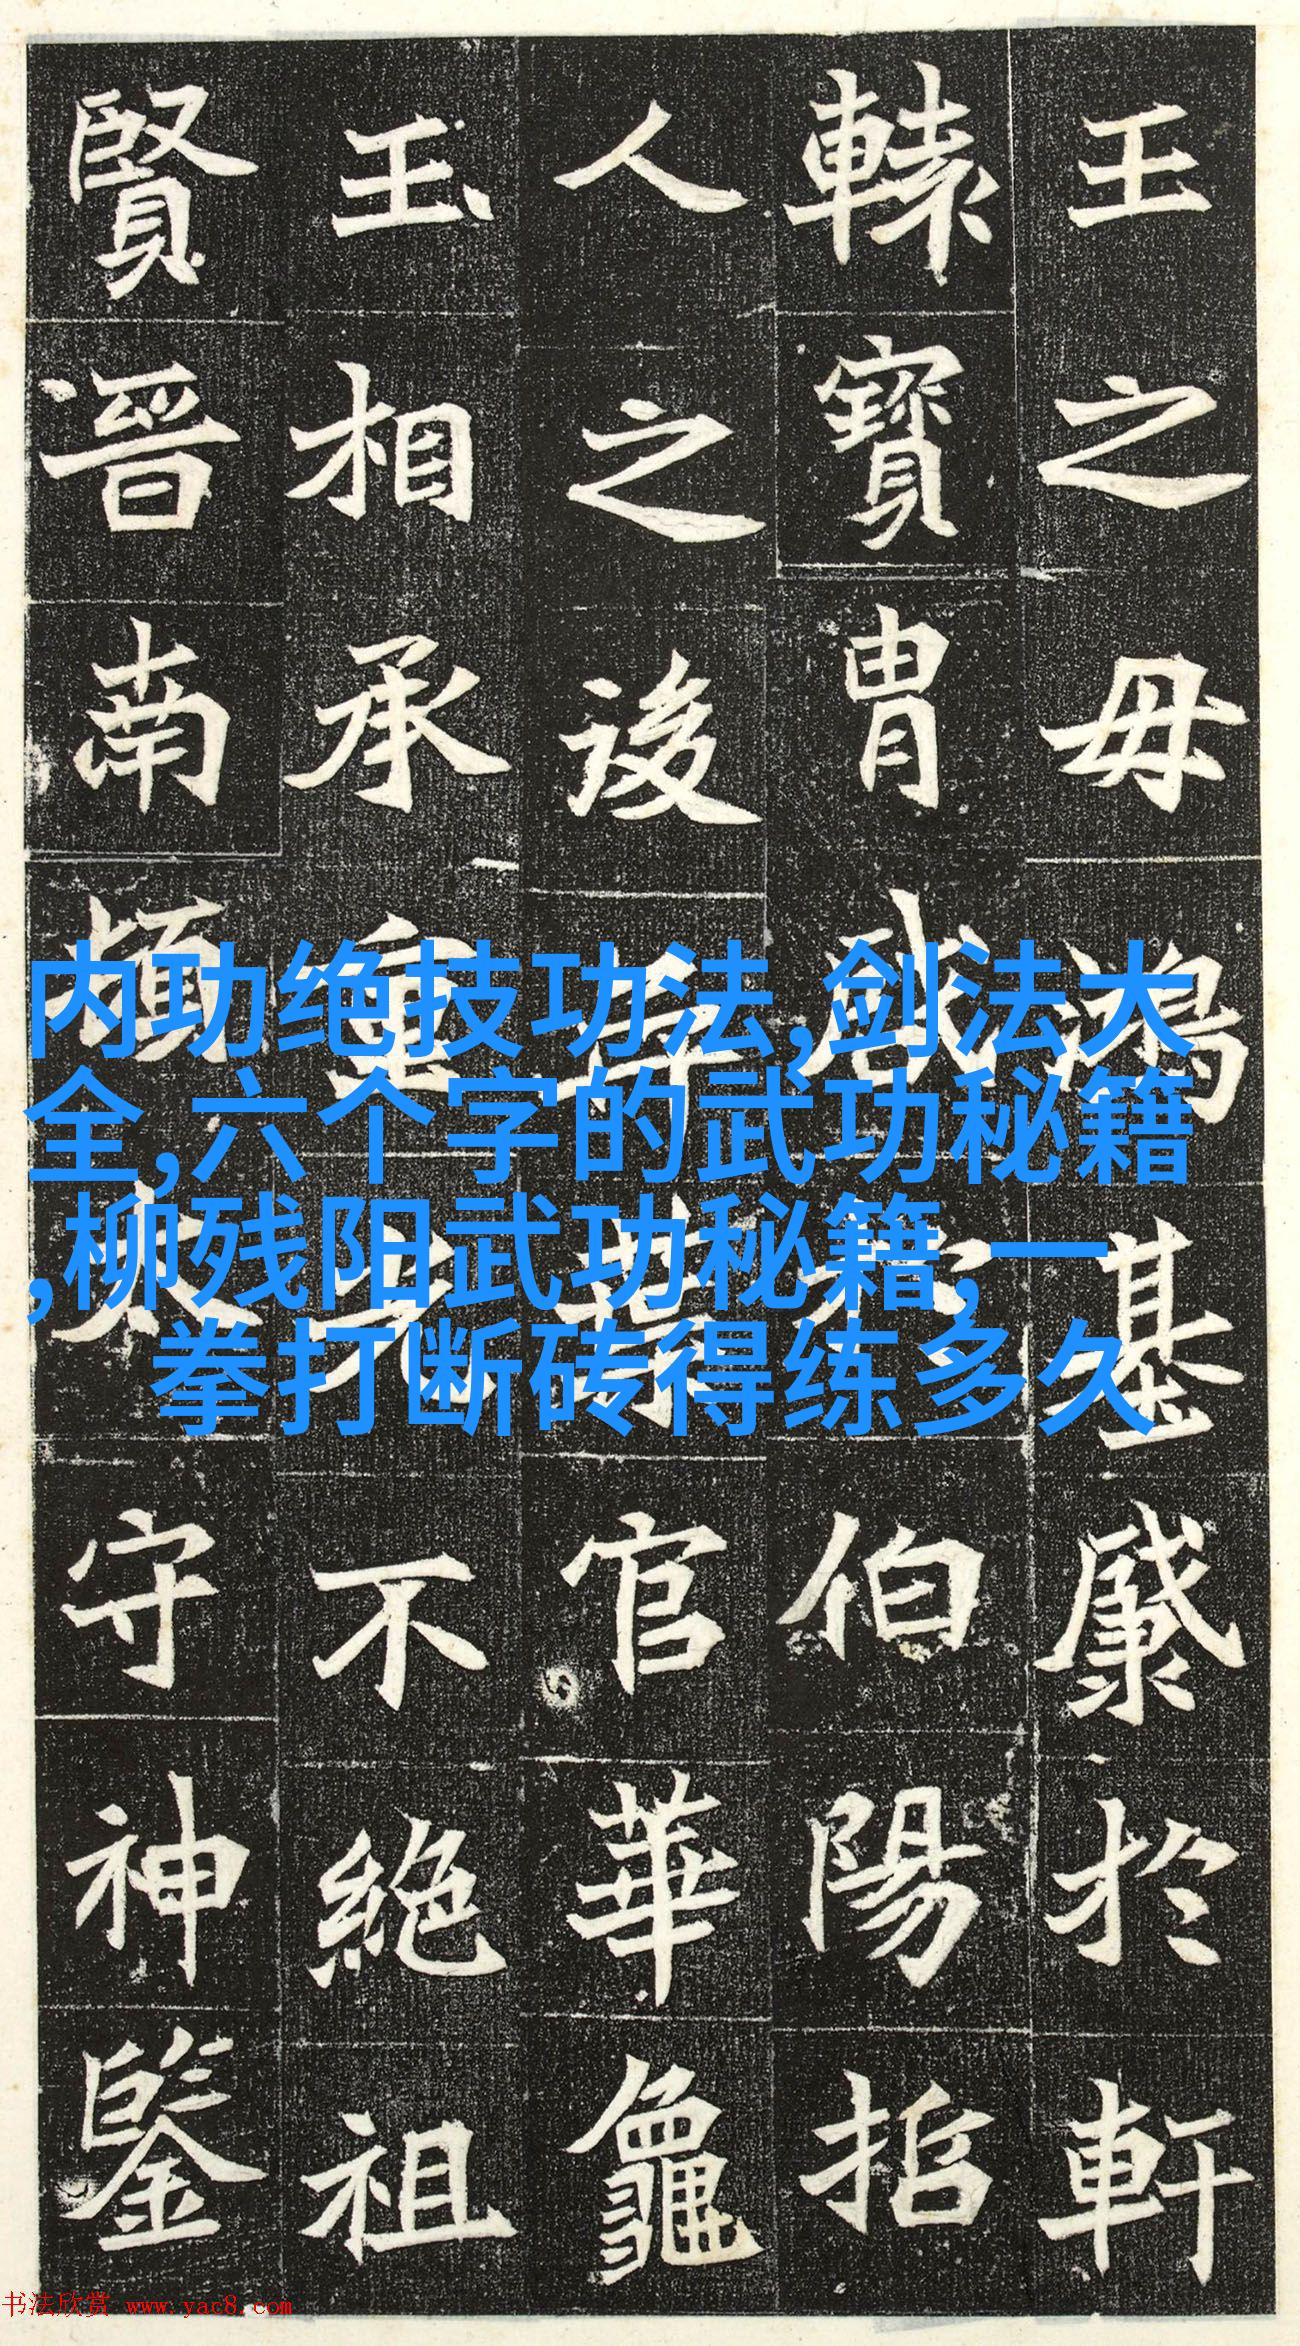 王之毋鴻基於軒
轅寶胄於伯陽指
人之後官華龜
玉相承重光不絕祖
賢晉南頓太守神鑒
内功绝技功法,剑法大
全,六个字的武功秘籍
,柳残阳武功秘籍,一
拳打断砖得练多久
书法欣赏 www.yac8.com